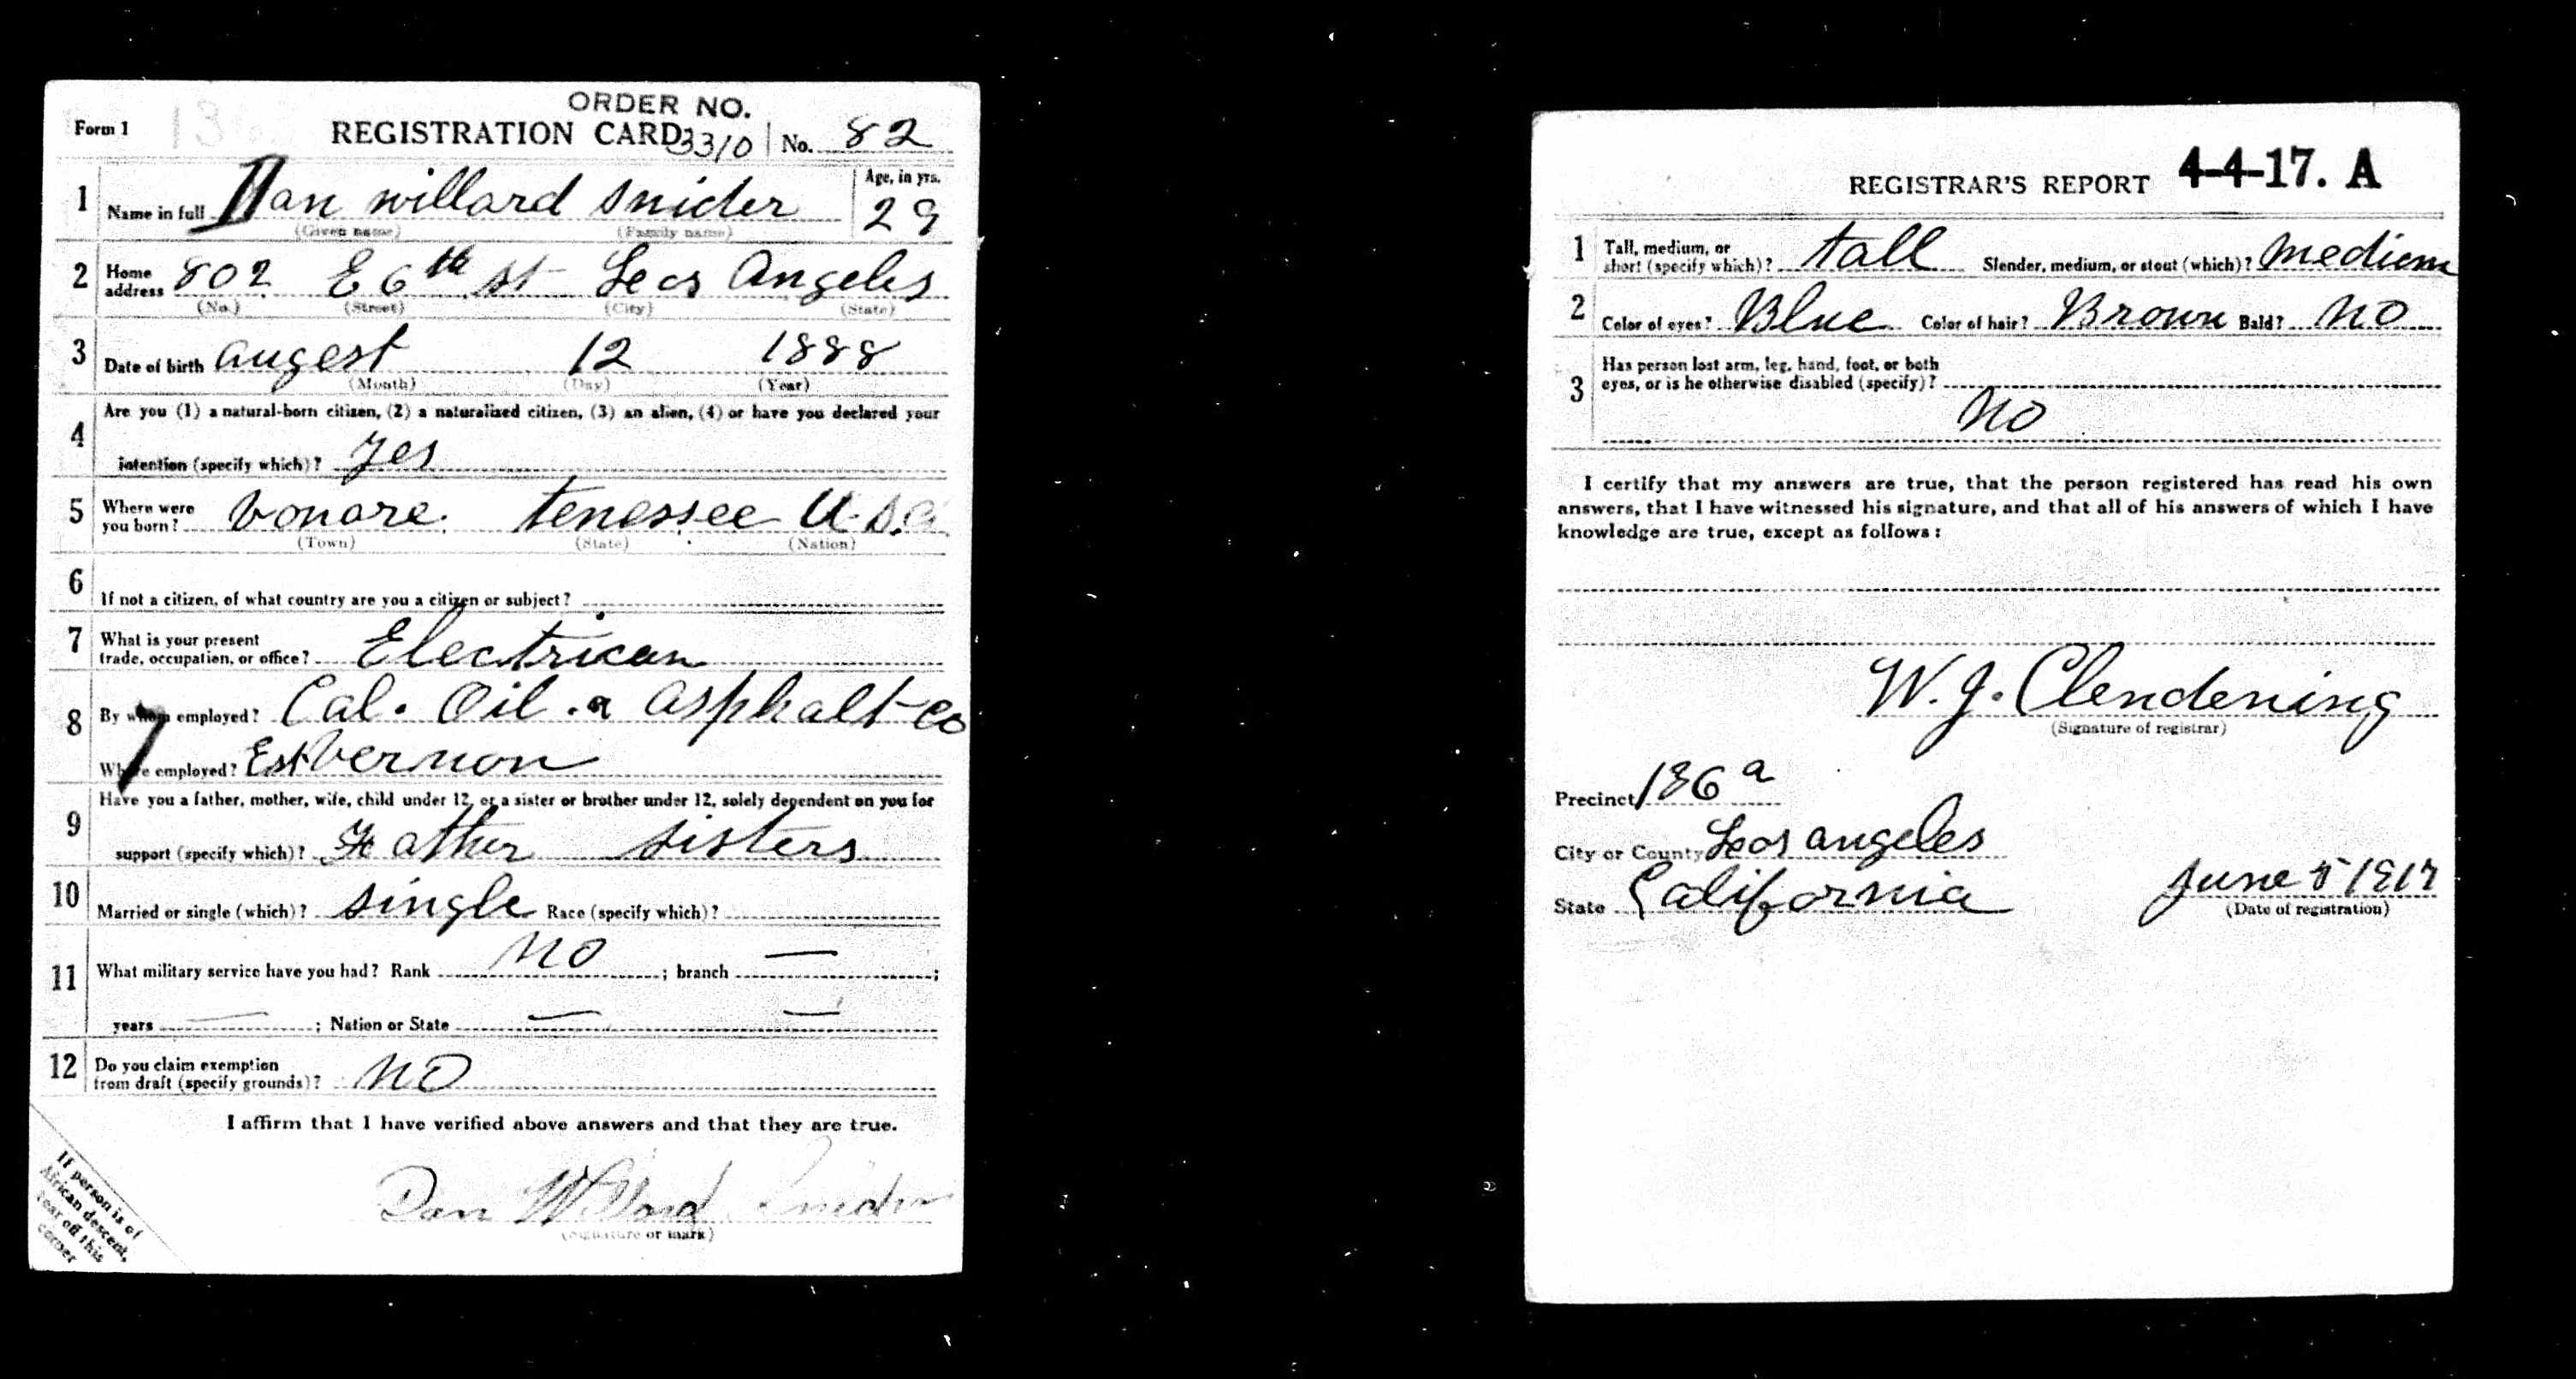 ORDER NO.
Form 1 REGISTRATION CARD 3310 No. 82
1 Name in full Dan willard snider Age, in yrs. 29
(Given name) (Family name)
2 Home address 802 E 6th st Los Angeles
(No.) (Street) (City) (State)
3 Date of birth augest 12 1888
(Month) (Day) (Year)
4 Are you (1) a natural-born citizen, (2) a naturalized citizen, (3) an alien, (4) or have you declared your
intention (specify which)? yes
5 Where were you born? Vonore tenessee U.S.a
(Town) (State) (Nation)
6 If not a citizen, of what country are you a citizen or subject?
7 What is your present trade, occupation, or office? Electrican
8 By whom employed? Cal. Oil & asphalt co
Where employed? Est Vernon
9 Have you a father, mother, wife, child under 12, or a sister or brother under 12, solely dependent on you for
support (specify which)? Father sisters
10 Married or single (which)? single Race (specify which)?
11 What military service have you had? Rank no ; branch — ;
years — ; Nation or State — —
12 Do you claim exemption from draft (specify grounds)? no
I affirm that I have verified above answers and that they are true.
Dan Willard Snider
(Signature or mark)
If person is of
African descent,
tear off this
corner
REGISTRAR'S REPORT 4-4-17. A
1 Tall, medium, or short (specify which)? tall Slender, medium, or stout (which)? medium
2 Color of eyes? Blue Color of hair? Brown Bald? no
3 Has person lost arm, leg, hand, foot, or both
eyes, or is he otherwise disabled (specify)?
no
I certify that my answers are true, that the person registered has read his own
answers, that I have witnessed his signature, and that all of his answers of which I have
knowledge are true, except as follows:
W. J. Clendening
(Signature of registrar)
Precinct 186 a
City or County Los angeles
State California June 5 1917
(Date of registration)